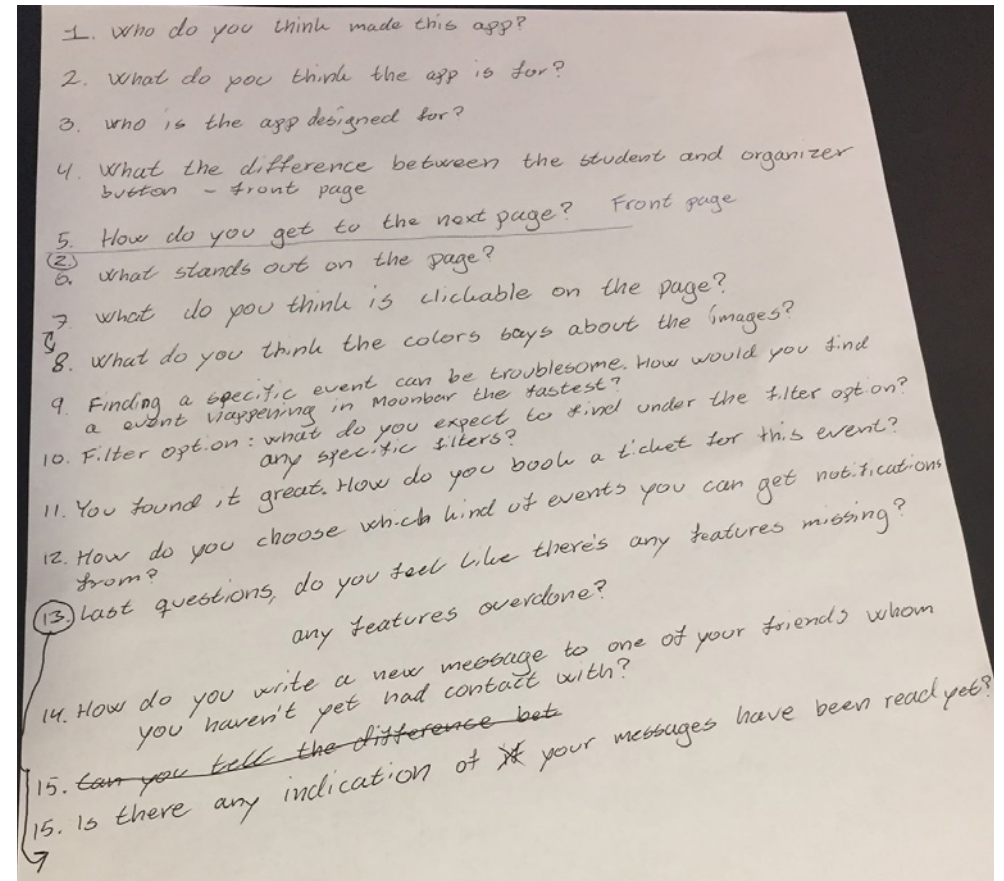 1. Who do you think made this app?
2. What do you think the app is for?
3. who is the app designed for?
4. What the difference between the student and organizer
button - front page
5. How do you get to the next page? Front page
2.
6. what stands out on the page?
7. what do you think is clickable on the page?
8. What do you think the colors says about the images?
9. Finding a specific event can be troublesome. How would you find
a event happening in Moonbar the fastest?
10. Filter option: what do you expect to find under the filter option?
any specific filters?
11. You found it great. How do you book a ticket for this event?
12. How do you choose which kind of events you can get notifications
from?
13. Last questions, do you feel like there's any features missing?
any features overdone?
14. How do you write a new message to one of your friends whom
you haven't yet had contact with?
15. Can you tell the difference bet
15. Is there any indication of if your messages have been read yet?